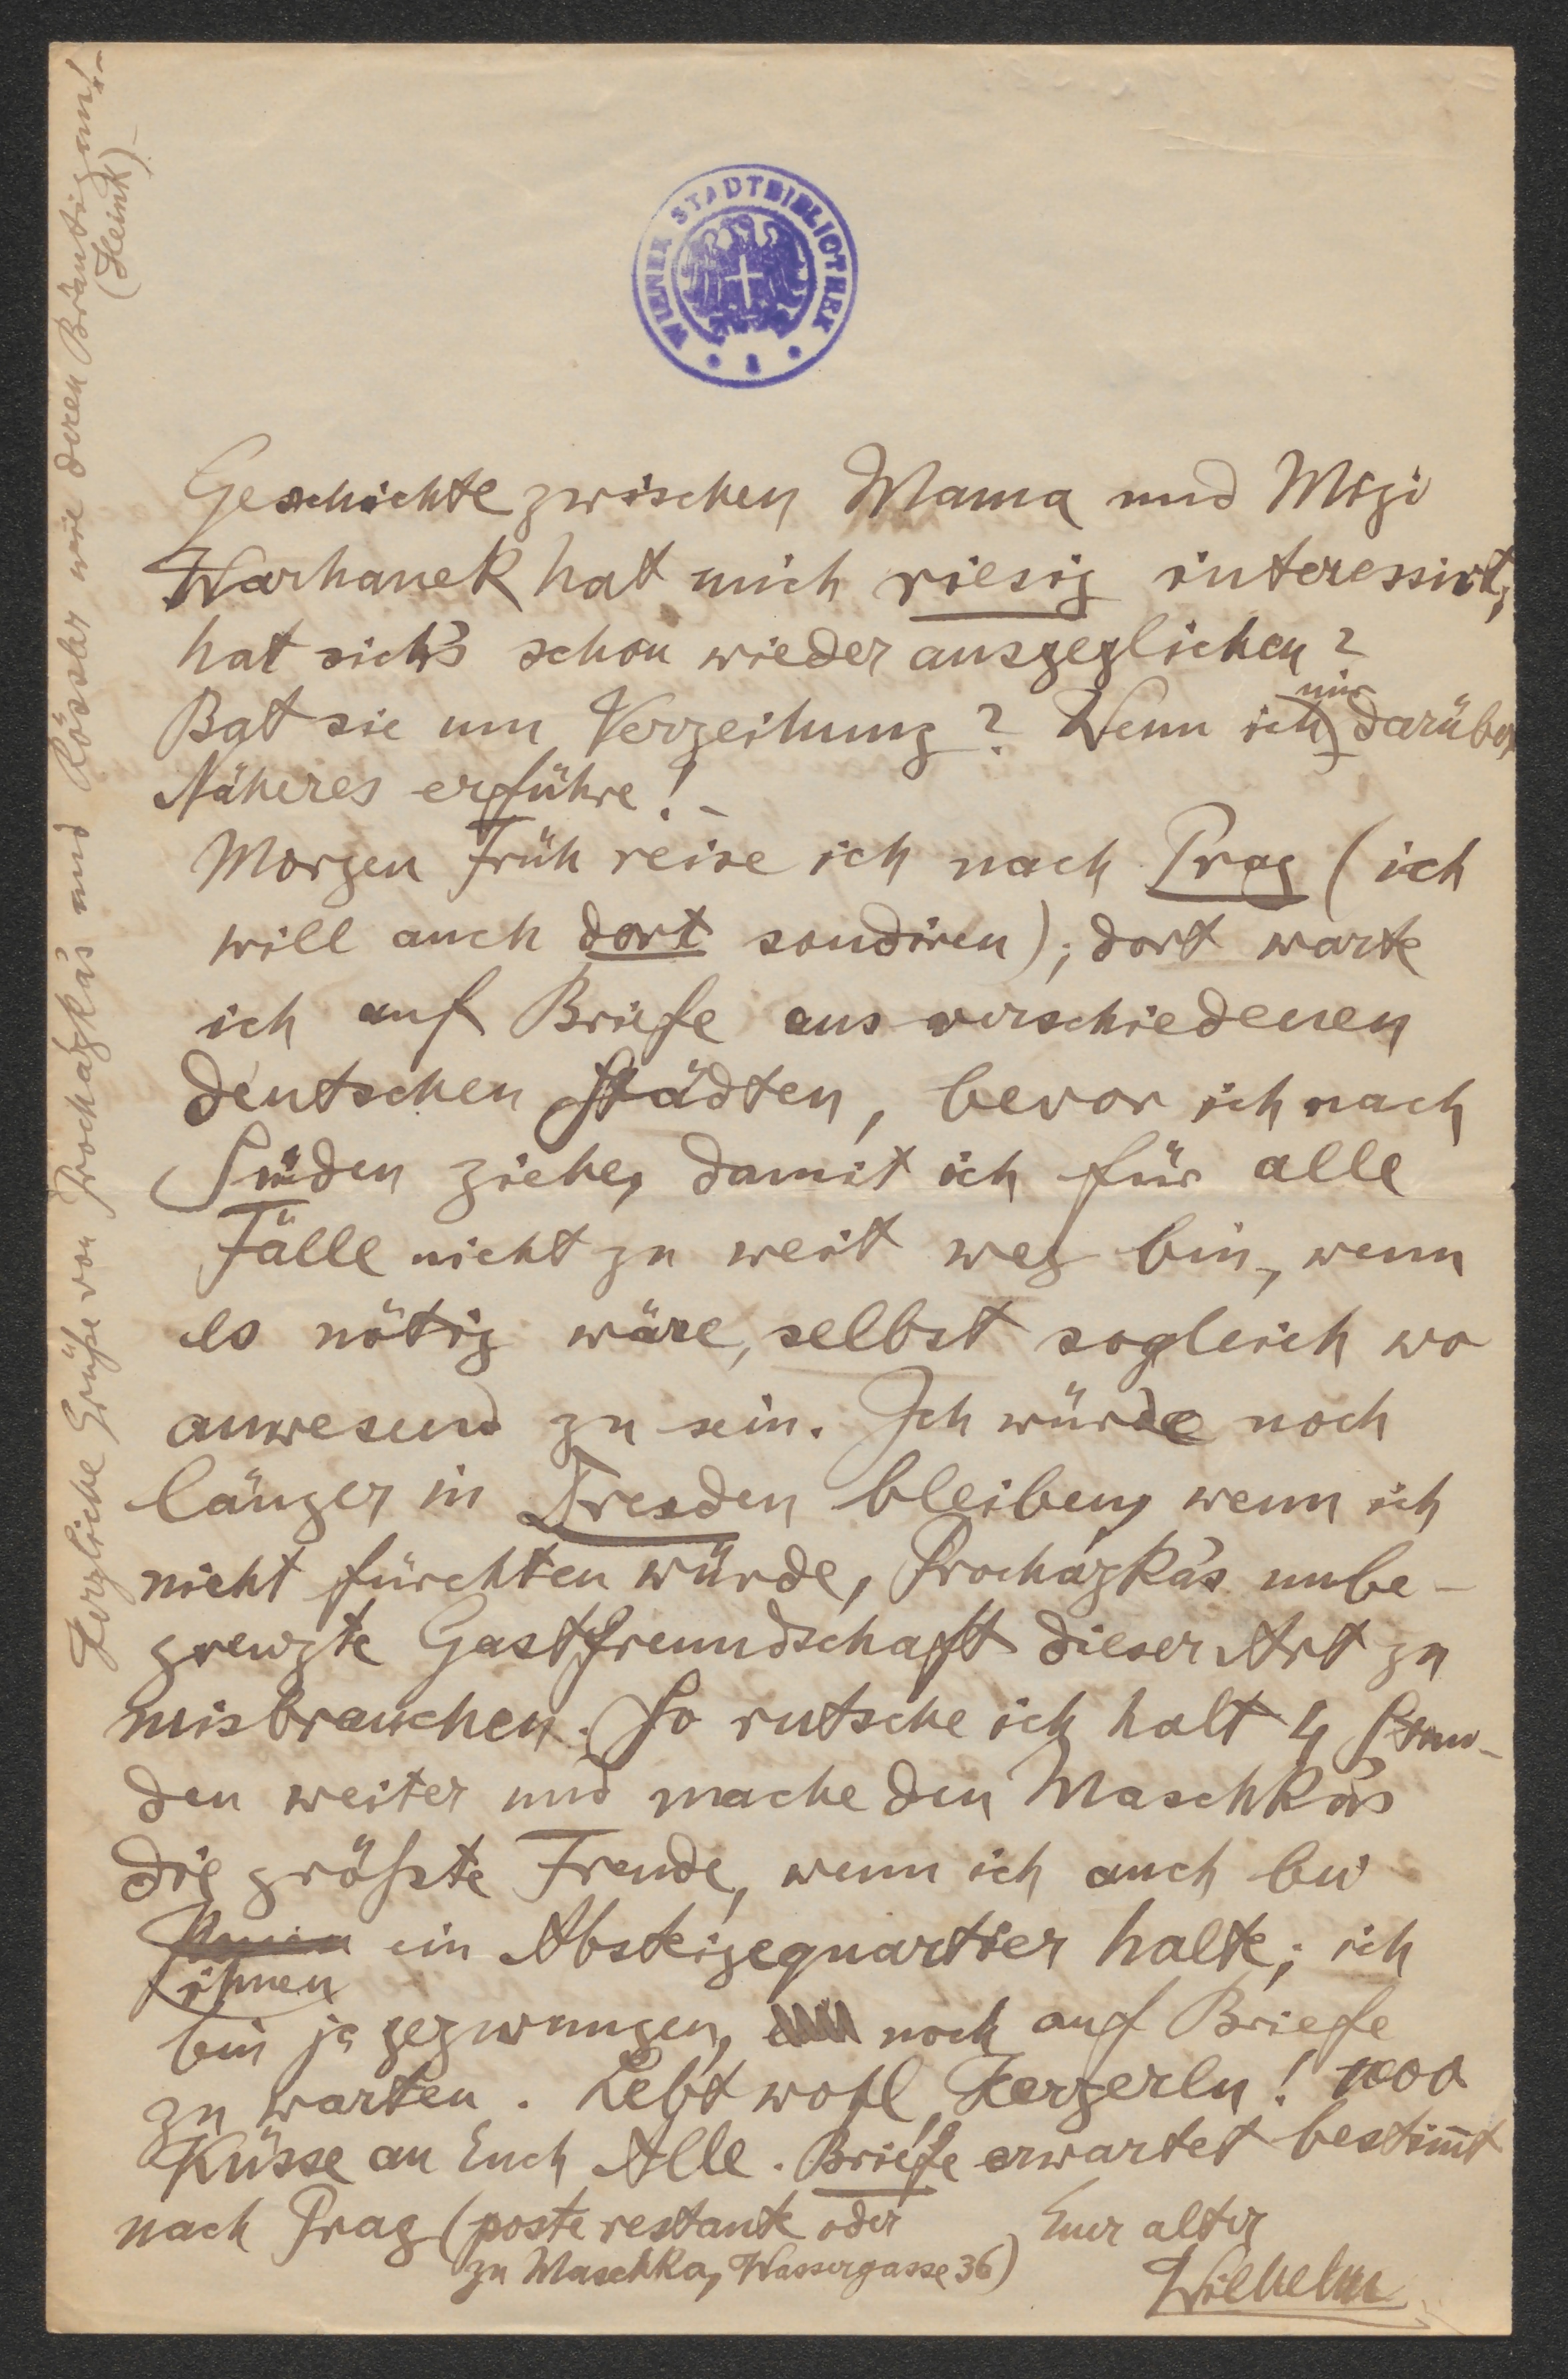 WIENER STADTBIBLIOTHEK
Geschichte zwischen Mama und Mizi
Warhanek hat mich riesig interessirt,
hat sich's schon wieder ausgeglichen?
Bat sie um Verzeihung? Wenn ich nur darüber
Näheres erführe! –
Morgen Früh reise ich nach Prag (ich
will auch dort sondiren); dort warte
ich auf Briefe aus verschiedenen
deutschen Städten, bevor ich nach
Süden ziehe, damit ich für alle
Fälle nicht zu weit weg bin, wenn
es nötig wäre, selbst sogleich wo
anwesend zu sein. Ich würde noch
länger in Dresden bleiben, wenn ich
nicht fürchten würde, Procházka's unbe-
grenzte Gastfreundschaft dieser Art zu
misbrauchen. So rutsche ich halt 4 Stun-
den weiter und mache den Maschka's
die größte Freude, wenn ich auch bei
ihnen ein Absteigequartier halte; ich
bin ja gezwungen, noch auf Briefe
zu warten. Lebt wohl, Herzerln! 1000
Küsse an Euch Alle. Briefe erwartet bestimmt
nach Prag (poste restante oder
zu Maschka, Wassergasse 36)
Euer alter
Wilhelm
Herzliche Grüße von Procházka's und Rössler wie deren Bräutigam. –
(Heink) –